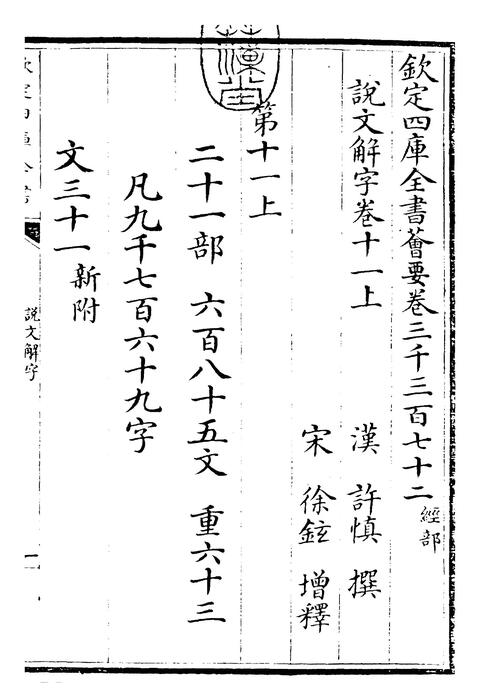 欽定四庫全書薈要卷三千三百七十二 經部
說文解字卷十一上
漢 許慎 撰
宋 徐鉉 增釋
第十一上
二十一部 六百八十五文 重六十三
凡九千七百六十九字
文三十一 新附
說文解字
一